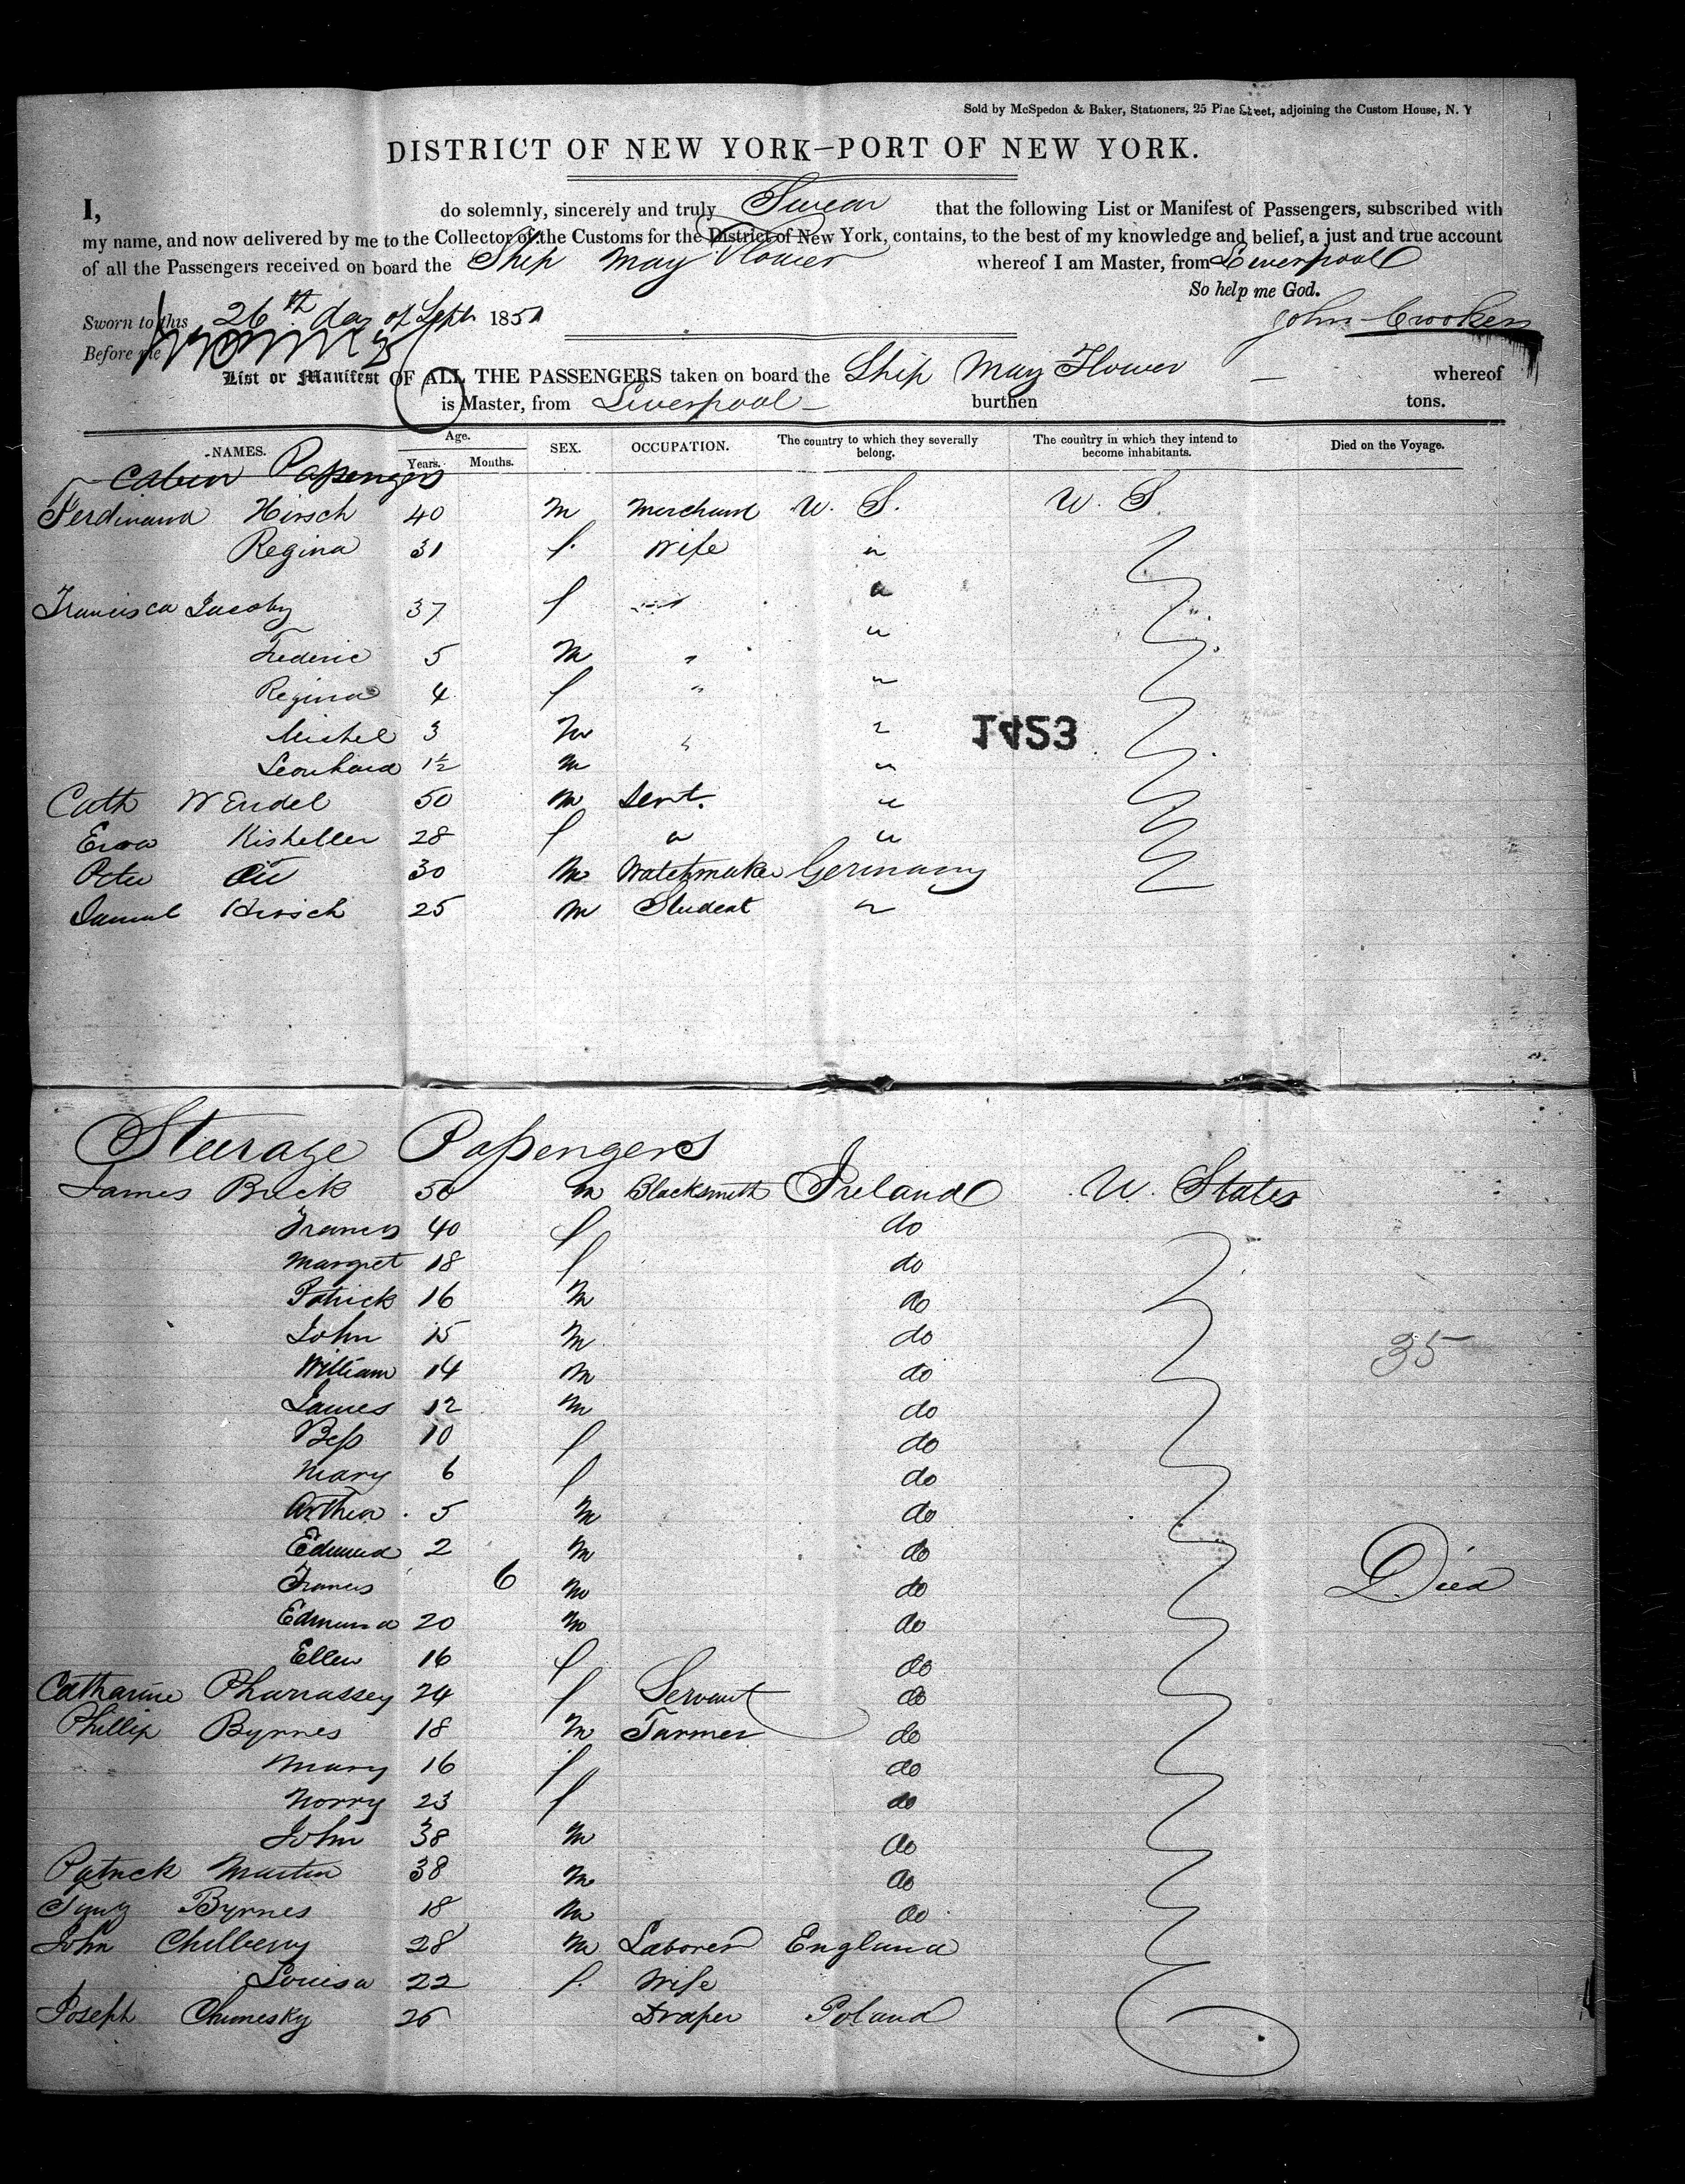 Sold by McSpedon & Baker, Stationers, 25 Pine Street, adjoining the Custom House, N. Y
DISTRICT OF NEW YORK—PORT OF NEW YORK.
I, do solemnly, sincerely and truly Swear that the following List or Manifest of Passengers, subscribed with
my name, and now delivered by me to the Collector of the Customs for the District of New York, contains, to the best of my knowledge and belief, a just and true account
of all the Passengers received on board the Ship May Flower whereof I am Master, from Liverpool
So help me God.
Sworn to this 26th day of Septr 1851
John Crooker
Before me
List or Manifest OF ALL THE PASSENGERS taken on board the Ship May Flower — whereof
is Master, from Liverpool — burthen tons.
NAMES. Age. Years. Months. SEX. OCCUPATION. The country to which they severally belong. The country in which they intend to become inhabitants. Died on the Voyage.
Cabin Passengers
Ferdinand Hirsch 40 M Merchant U. S. U. S.
Regina 31 f. Wife "
Francisca Jacoby 37 f " "
Frederic 5 M " "
Regina 4 f " "
Michel 3 M " "
1453
Leonhard 1½ M "
Cath Wendel 50 M Servt. "
Eva Kisheller 28 f " "
Peter 30 M Watchmaker Germany
Samuel Hirsch 25 M Student "
Steerage Passengers
James Buck 50 M Blacksmith Ireland U. States
Frances 40 f do
Margret 18 f do
Patrick 16 M do
John 15 M do
35
William 14 M do
James 12 M do
Bess 10 f do
Mary 6 f do
Arthur 5 M do
Edmund 2 M do
Francis 6 M do Died
Edmund 20 M do
Ellen 16 f do
Catharine Pharrassey 24 f Servant do
Phillip Byrnes 18 M Farmer do
Mary 16 f do
Norry 23 f do
John 38 M do
Patrick Martin 38 M do
Byrnes 18 M do
John Chilberry 28 M Laborer England
Louisa 22 f. Wife
Joseph Chimesky 25 Draper Poland